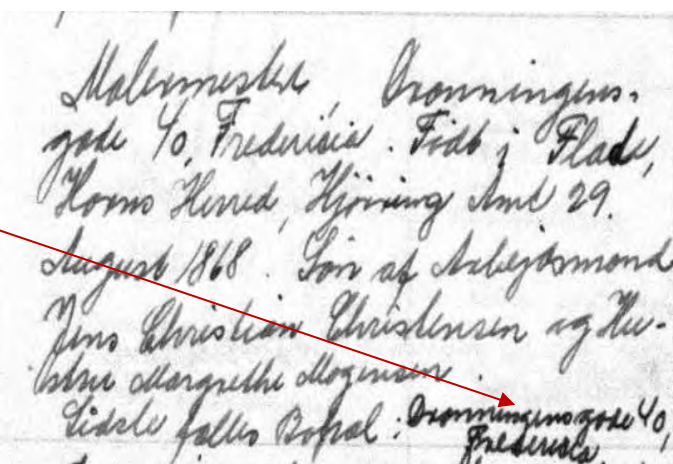 Malermester, Dronningens-
gade 40, Fredericia. Født i Flade,
Horns Herred, Hjørring Amt 29.
August 1868. Søn af Arbejdsmand
Jens Christian Christensen og Hu-
stru Margrethe Mogensen.
Sidste fælles Bopæl: Dronningensgade 40,
Fredericia